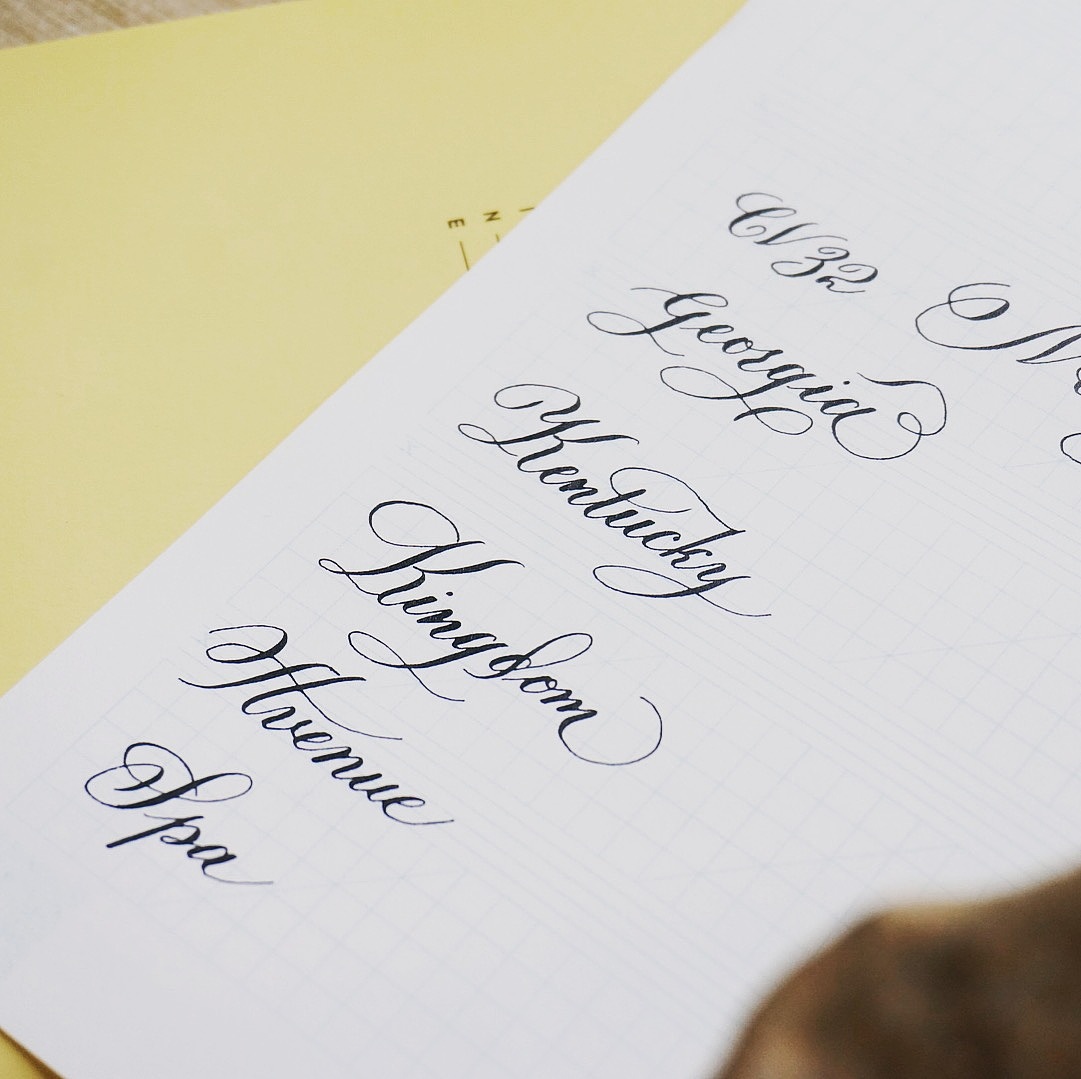 CV32
Georgia
Kentucky
Kingdom
Avenue
Spa
E N